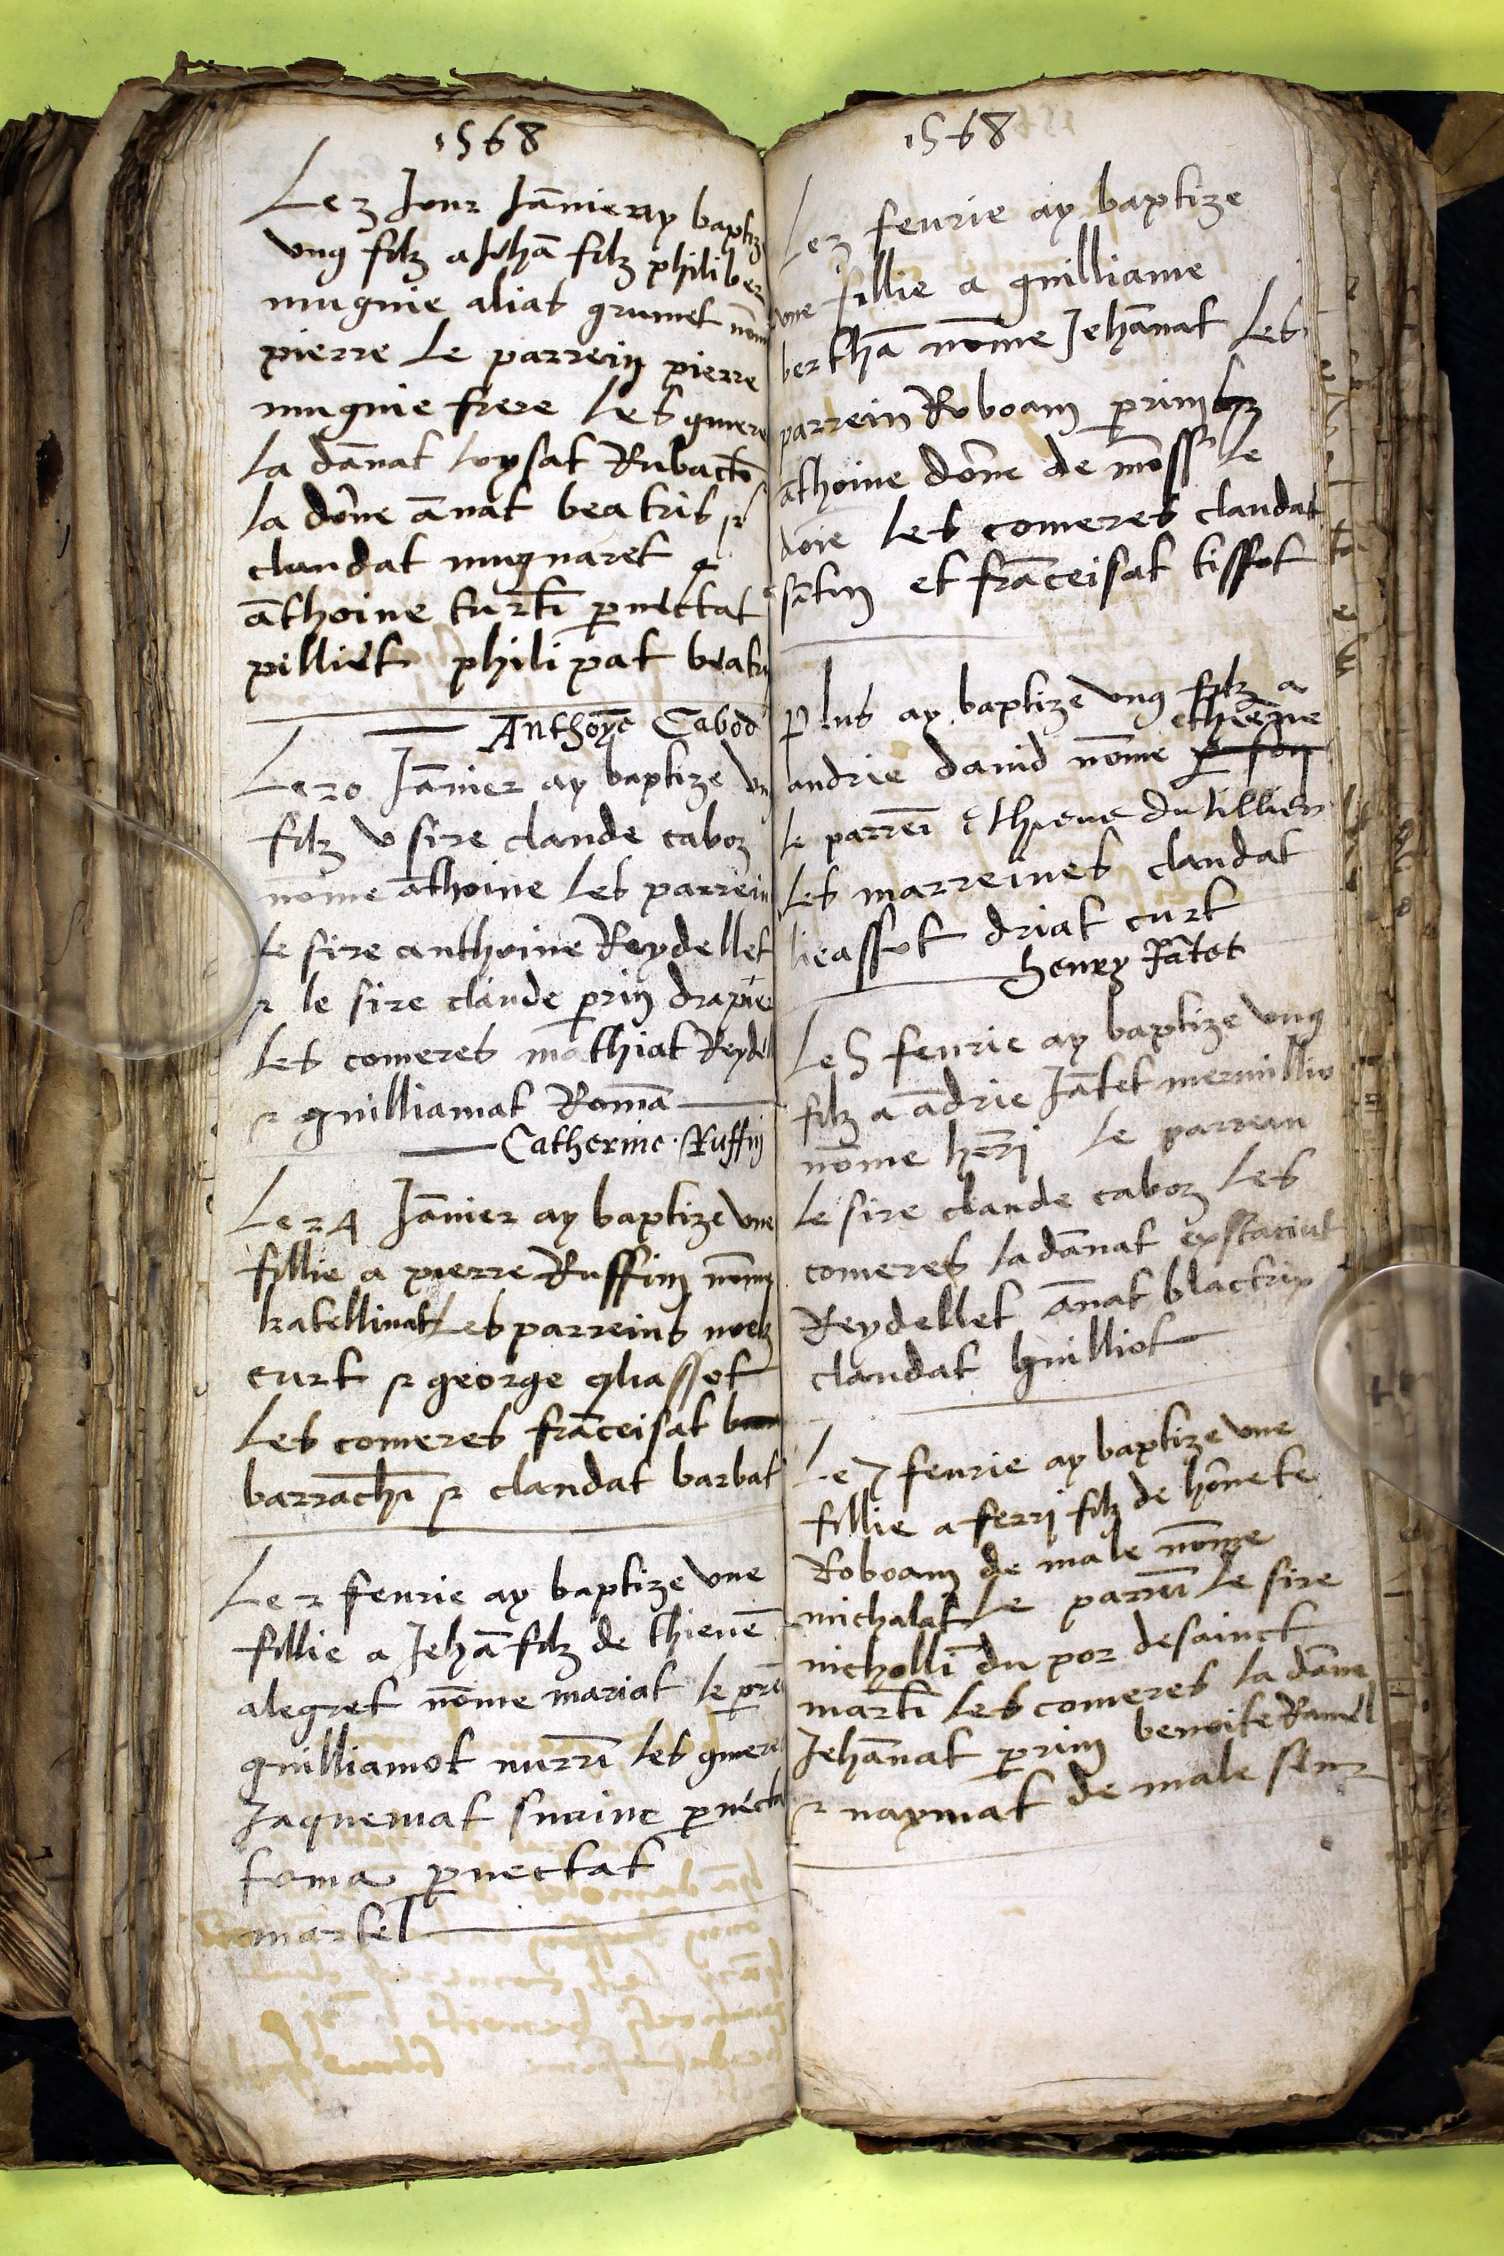 1568
Le 3 Jour Jāvier ay baptize
ung filz a Jehā filz philiber
mugnie aliat grumet nōm
pierre le parrein pierre
mugnie frere les cōmere
la dānat loysat Rubacto
la dōne ānat beatris et
claudat mugnaret et
āthoine turtī pernectat
pilliet philipat beatri
Anthoyē Cabod
Le 20 Jāvier ay baptize un
filz u sire claude caboz
nōme āthoine les parrein
le sire anthoine Reydellet
et le sire claude perrin drapier
les comeres mathiat Reydel
et guilliamat Romā
Catherine Ruffin
Le 24 Jāvier ay baptize une
fillie a pierre Ruffin nōme
katellinat les parreins noelz
curt et george
les comeres frāceisat
barrachī et claudat barbat
Le 2 feurie ay baptize une
fillie a Jehā filz de thievē
alegret nōme mariat le
guilliamot nurrī les cōmere
Jaquemat pernecta
toma pernectat
martel
1568
Le 3 feurie ay baptize
une fillie a guilliame
berthā nōme Jehānat les
parrein Roboam perrin
āthoine dōne de mōss le
doie les comeres claudat
et frāceisat tissot
Plus ay baptize ung filz a
andrie david nōme ethēene
le parreī ethieve du tillier
les marreines claudat
driat curt
Henry Jātet
Le 5 feurie ay baptize ung
filz a ādrie Jātet mermillio
nōme hēri le parrein
le sire claude caboz les
comeres la dānat
Reydellet ānat
claudat guilliot
Le 7 feurie ay baptize une
fillie a ferri filz de hōnete
Roboam de male nōme
michalat le parreī le sire
nichollī du por de sainct
martī les comeres la dāne
Jehānat perrin benoite Ramel
et naymat de male seur